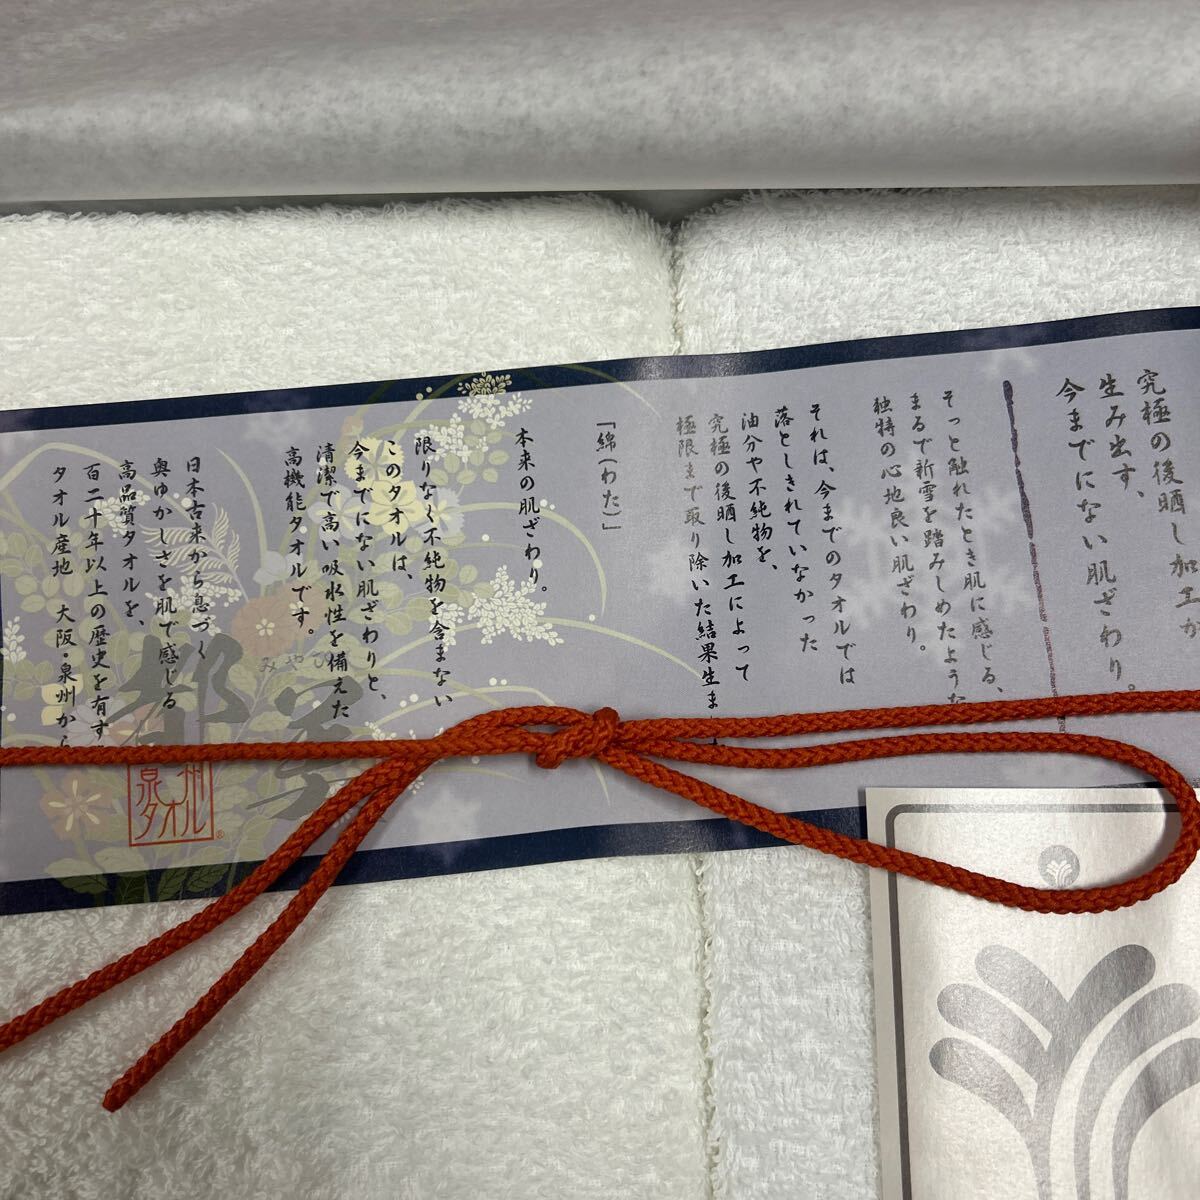 究極の後晒し加工が
生み出す、
今までにない肌ざわり。
そっと触れたとき肌に感じる、
まるで新雪を踏みしめたような
独特の心地良い肌ざわり。
それは、今までのタオルでは
落としきれていなかった
油分や不純物を、
究極の後晒し加工によって
極限まで取り除いた結果生ま
「綿(わた)」
本来の肌ざわり。
限りなく不純物を含まない
このタオルは、
今までにない肌ざわりと、
清潔で高い吸水性を備えた
高機能タオルです。
日本古来から息づく
奥ゆかしさを肌で感じる
高品質タオルを、
百二十年以上の歴史を有す
タオル産地 大阪・泉州から
みやび
都
泉州タオル®